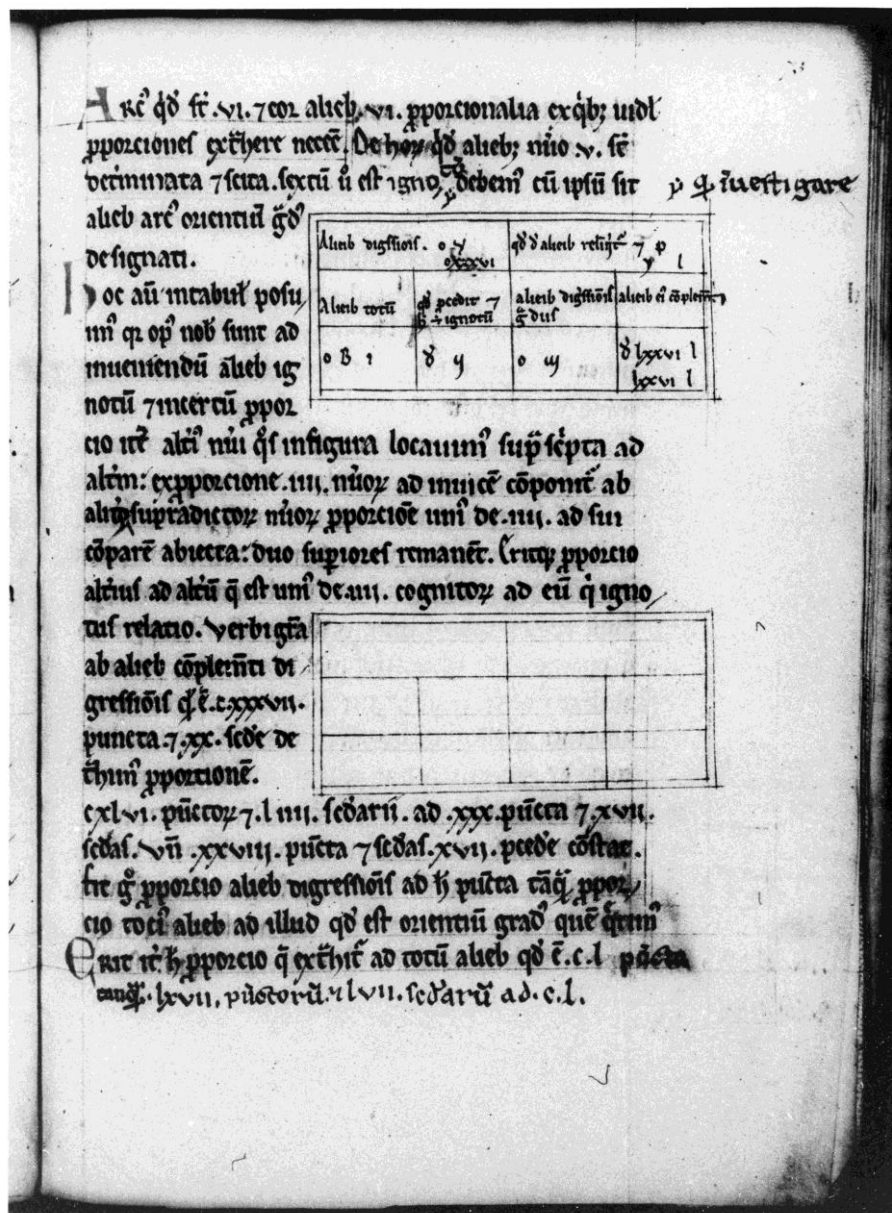 Arc' qd' fit .vi. ⁊ cor alieb .vi. ꝓporcionalia ex qͥb; uidl
ꝓporciones extͣhere necēe. De hoꝝ qd' alieb; nūo .v. sē
detīminata ⁊ scita. sextū ū est igno debem' cū ipsū sit
ꝙ īuestigare
alieb arc' orientiū gͣd'
designati.
Alieb digssiōis. o
oxxxvi
qd' d' alieb
Alieb totū
qd' p̄cedit ⁊ ignotū
alieb digssiōis gͣdus
alieb ei' cōplem̄ti
lxxvi l
lxxvi l
hoc aū in tabuł posu
im' qͥ op' nob sunt ad
inueniendū alieb ig
notū ⁊ incertū ꝓpor
cio itē alti' nūi qͦs in figura locauim' supͣ scͥpta ad
altm: ex ꝓporcione .iiii. nūoꝝ ad inuicē cōponit̄ ab
supͣdictoꝝ nūoꝝ ꝓporciōe uni' de .iiii. ad sui
cōparē abiecta: duo supiores remanēt. Eritqꝫ ꝓporcio
altius ad altū q̄ est uni' de .iiii. cognitoꝝ ad eū qͥ igno
tus relatio. Verbi gͬa
ab alieb cōplem̄ti di
gressiōis qd' ē .c.xxxvii.
puncta .⁊ .xx. scd'e de
tͣhim' ꝓportionē.
cxlvi. pūctoꝝ ⁊ .l iiii. scd'arū. ad .xxx. pūcta ⁊ .xvii.
scd'as. Vn̄ .xxviii. pūcta ⁊ scd'as .xvii. p̄ced'e cōstat.
fit gͦ ꝓporcio alieb digressiōis ad h̄ pūcta tāqͣ ꝓpor
cio toci' alieb ad illud qd' est orientiū grad' quē qͣrim'
Erit it̄ h̄ ꝓporcio q̄ extͣhit̄ ad totū alieb qd' ē .c.l pūcta
tanqͣ .lxvii. pūctorū .⁊ lvii. scd'arū ad .c.l.